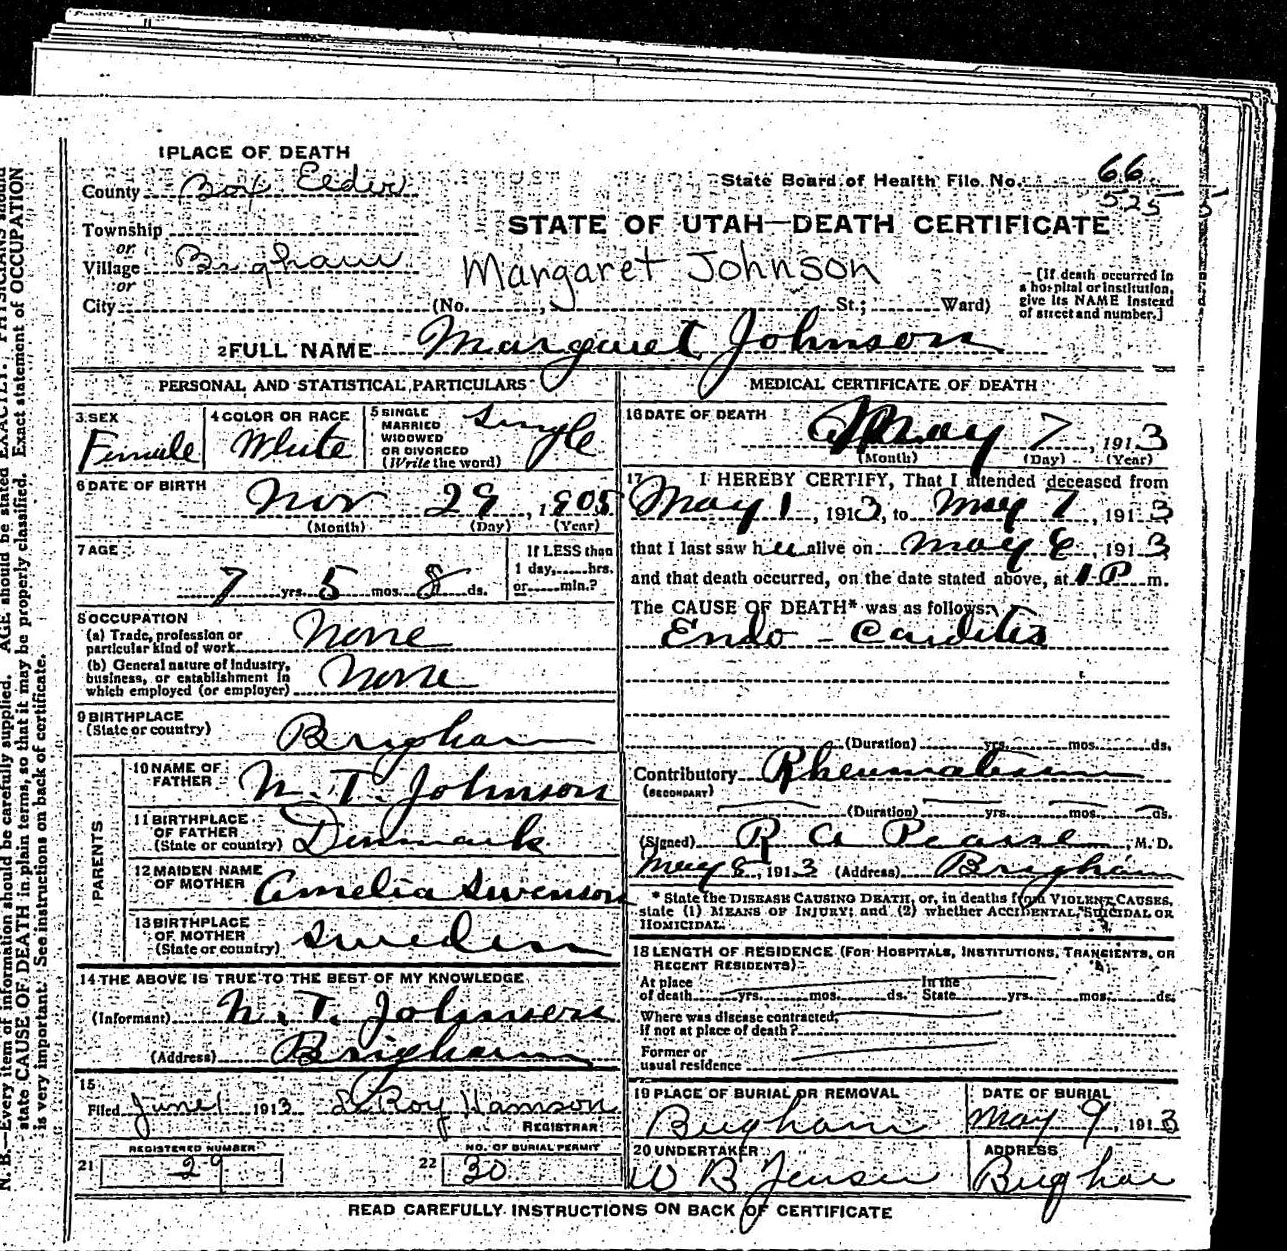 1 PLACE OF DEATH
County Box Elder
State Board of Health File No. 66
525
5
Township
STATE OF UTAH—DEATH CERTIFICATE
or
Village Brigham
or
Margaret Johnson
City (No. , St.; Ward)
[If death occurred in
a hospital or institution,
give its NAME instead
of street and number.]
2 FULL NAME Margaret Johnson
PERSONAL AND STATISTICAL PARTICULARS
3 SEX
Female
4 COLOR OR RACE
White
5 SINGLE
MARRIED
WIDOWED
OR DIVORCED
(Write the word)
Single
6 DATE OF BIRTH
Nov 29, 1905
(Month) (Day) (Year)
7 AGE
7 yrs. 5 mos. 8 ds.
If LESS than
1 day, hrs.
or min.?
8 OCCUPATION
(a) Trade, profession or
particular kind of work None
(b) General nature of industry,
business, or establishment in
which employed (or employer) None
9 BIRTHPLACE
(State or country) Brigham
PARENTS
10 NAME OF
FATHER N. T. Johnson
11 BIRTHPLACE
OF FATHER
(State or country) Denmark
12 MAIDEN NAME
OF MOTHER Amelia Swenson
13 BIRTHPLACE
OF MOTHER
(State or country) Sweden
14 THE ABOVE IS TRUE TO THE BEST OF MY KNOWLEDGE
(Informant) N. T. Johnson
(Address) Brigham
15
Filed June 1 1913
REGISTRAR
REGISTERED NUMBER
21 29
NO. OF BURIAL PERMIT
22 30
MEDICAL CERTIFICATE OF DEATH
16 DATE OF DEATH
May 7, 1913
(Month) (Day) (Year)
17 I HEREBY CERTIFY, That I attended deceased from
May 1, 1913, to May 7, 1913
that I last saw her alive on May 6, 1913
and that death occurred, on the date stated above, at 1 P m.
The CAUSE OF DEATH* was as follows:
Endo-Carditis
(Duration) yrs. mos. ds.
Contributory Rheumatism
(SECONDARY)
(Duration) yrs. mos. ds.
(Signed) R A Pearse, M. D.
May 8, 1913 (Address) Brigham
* State the DISEASE CAUSING DEATH, or, in deaths from VIOLENT CAUSES,
state (1) MEANS OF INJURY; and (2) whether ACCIDENTAL, SUICIDAL OR
HOMICIDAL.
18 LENGTH OF RESIDENCE (FOR HOSPITALS, INSTITUTIONS, TRANSIENTS, OR
RECENT RESIDENTS)
At place In the
of death yrs. mos. ds. State yrs. mos. ds.
Where was disease contracted,
if not at place of death?
Former or
usual residence
19 PLACE OF BURIAL OR REMOVAL
Brigham
DATE OF BURIAL
May 9, 1913
20 UNDERTAKER
W B Jensen
ADDRESS
Brigham
READ CAREFULLY INSTRUCTIONS ON BACK OF CERTIFICATE
N. B.—Every item of information should be carefully supplied. AGE should be stated EXACTLY. PHYSICIANS should
state CAUSE OF DEATH in plain terms, so that it may be properly classified. Exact statement of OCCUPATION
is very important. See instructions on back of certificate.